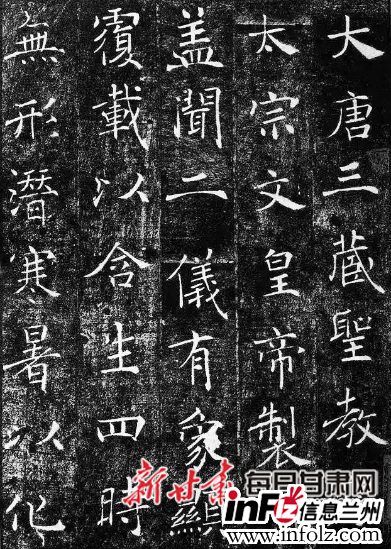 大唐三藏聖教
太宗文皇帝製
盖聞二儀有象顯
覆載以含生四時
無形潛寒暑以化
新甘肃
每日甘肃网
inFlz信息兰州
www.infolz.com